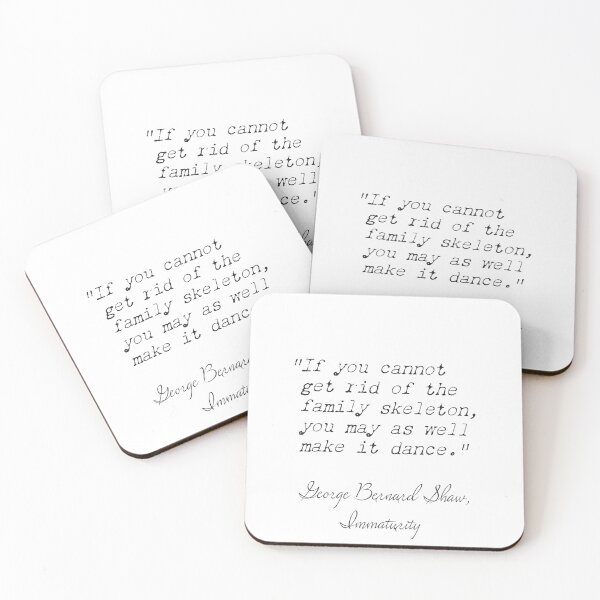 "If you cannot
get rid of the
family skeleton,
you may as well
dance."
"If you cannot
get rid of the
family skeleton,
you may as well
make it dance."
"If you cannot
get rid of the
family skeleton,
you may as well
make it dance.
George Bernard
Immaturity
"If you cannot
get rid of the
family skeleton,
you may as well
make it dance."
George Bernard Shaw,
Immaturity